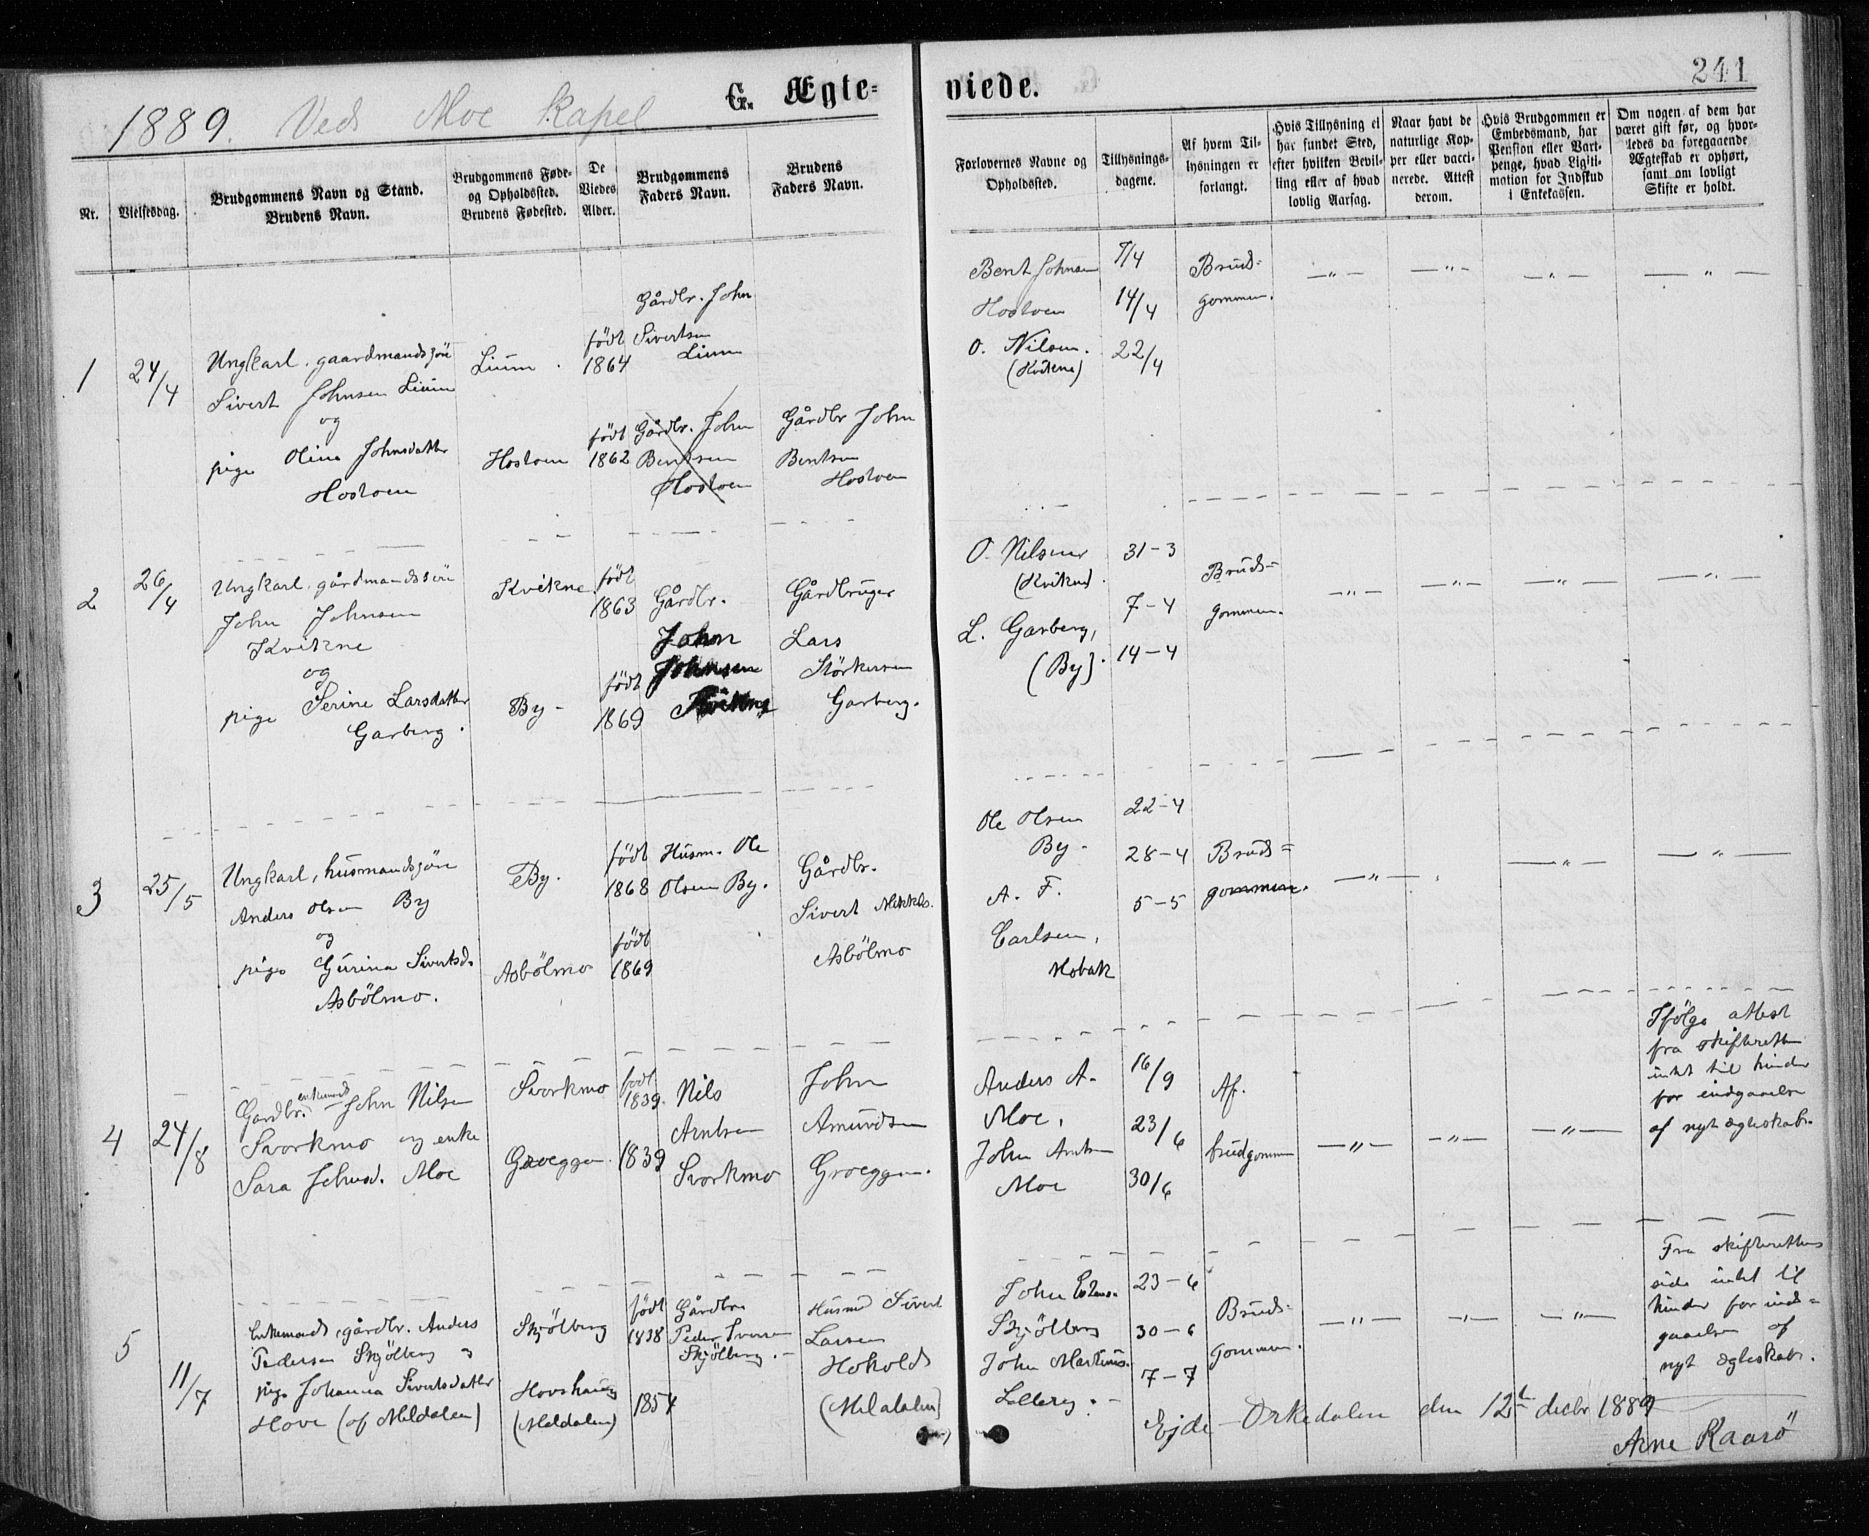 1889. Ved Moe Kapel
G. Ægte-
viede.
241
Nr.
Vielsesdag.
Brudgommens Navn og Stand.
Brudens Navn.
Brudgommens Føde-
og Opholdssted.
Brudens Fødested.
De
Viedes
Alder.
Brudgommens
Faders Navn.
Brudens
Faders Navn.
Forlovernes Navne og
Opholdssted.
Tillysnings-
dagene.
Af hvem Til-
lysningen er
forlangt.
Hvis Tillysning ei
har fundet Sted,
efter hvilken Bevil-
ling eller af hvad
lovlig Aarsag.
Naar havt de
naturlige Kop-
per eller vacci-
nerede. Attest
derom.
Hvis Brudgommen er
Embedsmand, har
Pension eller Vart-
penge, hvad Ligiti-
mation for Indskud
i Enkekassen.
Om nogen af dem har
været gift før, og hvor-
ledes da foregaaende
Ægteskab er ophørt,
samt om lovligt
Skifte er holdt.
1
24/4
Ungkarl. gaardmandssön
Sivert Johnsen Lium
og
pige Olina Johnsdatter
Hostoen
Lium.
Hostoen
födt
1864
födt
1862
Gårdbr. John
Sivertsen
Lium
Gårdbr. John
Bentsen
Hostoen
Gårdbr John
Bentsen
Hostoen
Bent Johnsen
Hostoen
O. Nilsen.
(Kvikne)
7/4
14/4
22/4
Brud-
gommen.
—„—
—„—
—„—
—„—
2
26/4
Ungkarl. gårdmandssön
John Johnsen
Kvikne
og
pige Serine Larsdatter
Garberg.
Kvikne
By -
födt
1863
födt
1869
Gårdbr.
John
Johnsen
Kvikne
Gårdbruger
Lars
Störkersen
Garberg.
O. Nilsen
(Kvikne).
L. Garberg,
(By).
31-3
7-4
14-4
Brud-
gommen.
—„—
—„—
—„—
—„—
3
25/5
Ungkarl, husmandssön
Anders Olsen By
og
pige Gurina Sivertsd.
Asbölmo.
By.
Asbölmo
födt
1868
födt
1869
Husm. Ole
Olsen By.
Gårdbr.
Sivert Mikkels.
Asbölmo
Ole Olsen
By.
A. F.
Carlsen,
Hobak
22-4
28-4
5-5
Brud-
gommen.
—„—
—„—
—„—
4
24/8
enkemand
Gardbr. John Nilsen
Svorkmo og enke
Sara Johnsd. Moe
Svorkmo
Groeggen.
födt
1839.
1839
Nils
Arntsen
Svorkmo
John
Amundsen
Groeggen.
Anders A.
Moe,
John Arntsen
Moe
16/9
23/6
30/6
Af.
brudgommen
—„—
—„—
—„—
Ifölge attest
fra skifteretten
intet til hinder
for indgaaelse
af nyt ægteskab.
5
11/7
Enkemand, gårdbr. Anders
Pedersen Skjölberg og
pige Johanna Sivertsdatter
Hove (af Meldalen)
Skjölberg
Hovshaug
(Meldalen)
födt
1838
1854
Gårdbr.
Peder Iversen
Skjölberg.
Husmd Sivert
Larsen
Hokold
(Meldalen)
John Estens.
Skjölberg
John Martinus.
23-6
30-6
7-7
Brud-
gommen.
—„—
—„—
—„—
Fra skifterettens
side intet til
hinder for ind-
gaaelse af
nyt ægteskab.
Ejde - Orkedalen den 12te decbr 1889
Arne Raarö